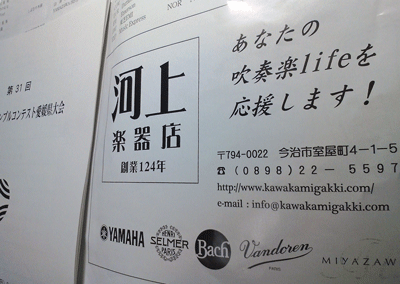 NOR
Express
第31回
ンブルコンテスト愛媛県大会
河上
楽器店
創業124年
あなたの
吹奏楽lifeを
応援します！
〒794-0022 今治市室屋町4-1-5
☎(0898)22-5597
http://www.kawakamigakki.com/
e-mail : info@kawakamigakki.com
YAMAHA
HENRI
SELMER
PARIS
Bach
Vandoren
PARIS
MIYAZAW